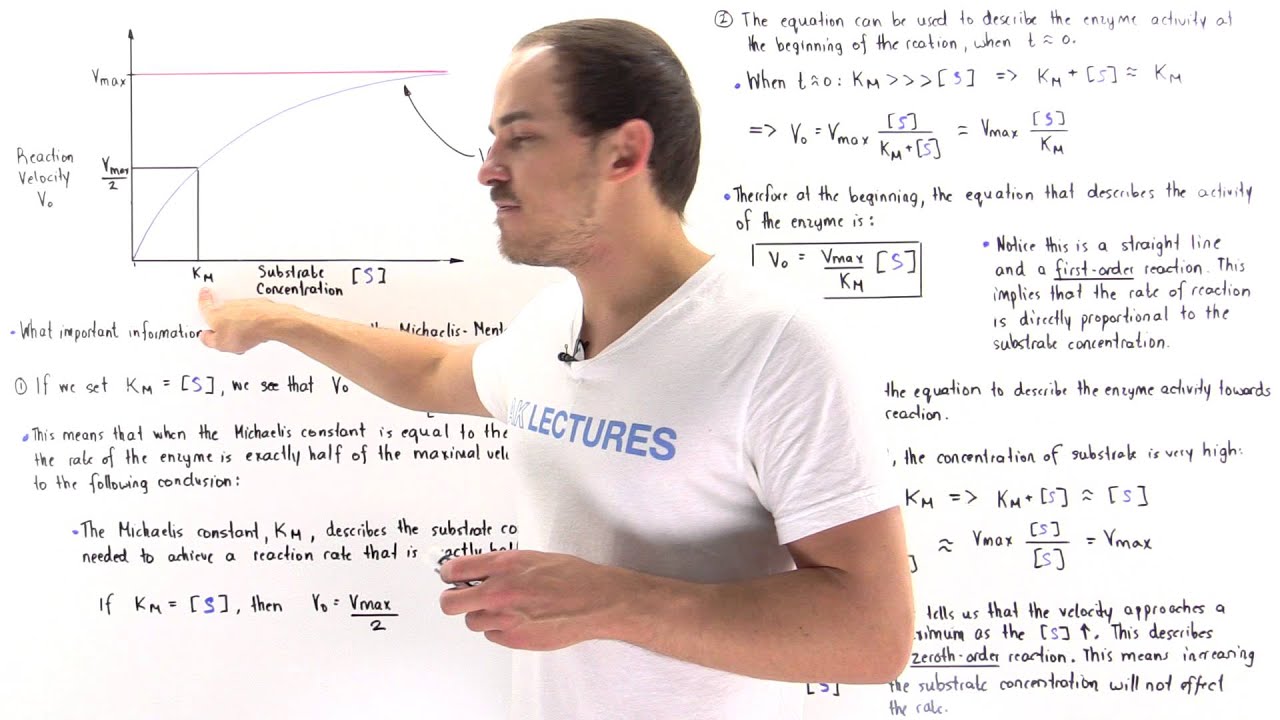 Vmax
Reaction
Velocity
V₀
Vmax
2
KM
Substrate
Concentration [S]
• What important information
the Michaelis-Ment
① If we set KM = [S], we see that V₀
• This means that when the Michaelis constant is equal to the
the rate of the enzyme is exactly half of the maximal velo
to the following conclusion:
• The Michaelis constant, KM, describes the substrate co
needed to achieve a reaction rate that is exactly half
If KM = [S], then V₀ = Vmax
2
AK LECTURES
② The equation can be used to describe the enzyme activity at
the beginning of the reation, when t ≈ 0.
• When t ≈ 0: KM >>> [S] => KM + [S] ≈ KM
=> V₀ = Vmax [S] / KM+[S] = Vmax [S] / KM
• Therefore at the beginning, the equation that describes the activity
of the enzyme is:
V₀ = Vmax / KM [S]
• Notice this is a straight line
and a first-order reaction. This
implies that the rate of reaction
is directly proportional to the
substrate concentration.
the equation to describe the enzyme activity towards
reaction.
, the concentration of substrate is very high:
KM => KM + [S] ≈ [S]
≈ Vmax [S] / [S] = Vmax
tells us that the velocity approaches a
ximum as the [S] ↑. This describes
zeroth-order reaction. This means increasing
[S] the substrate concentration will not effect
the rate.